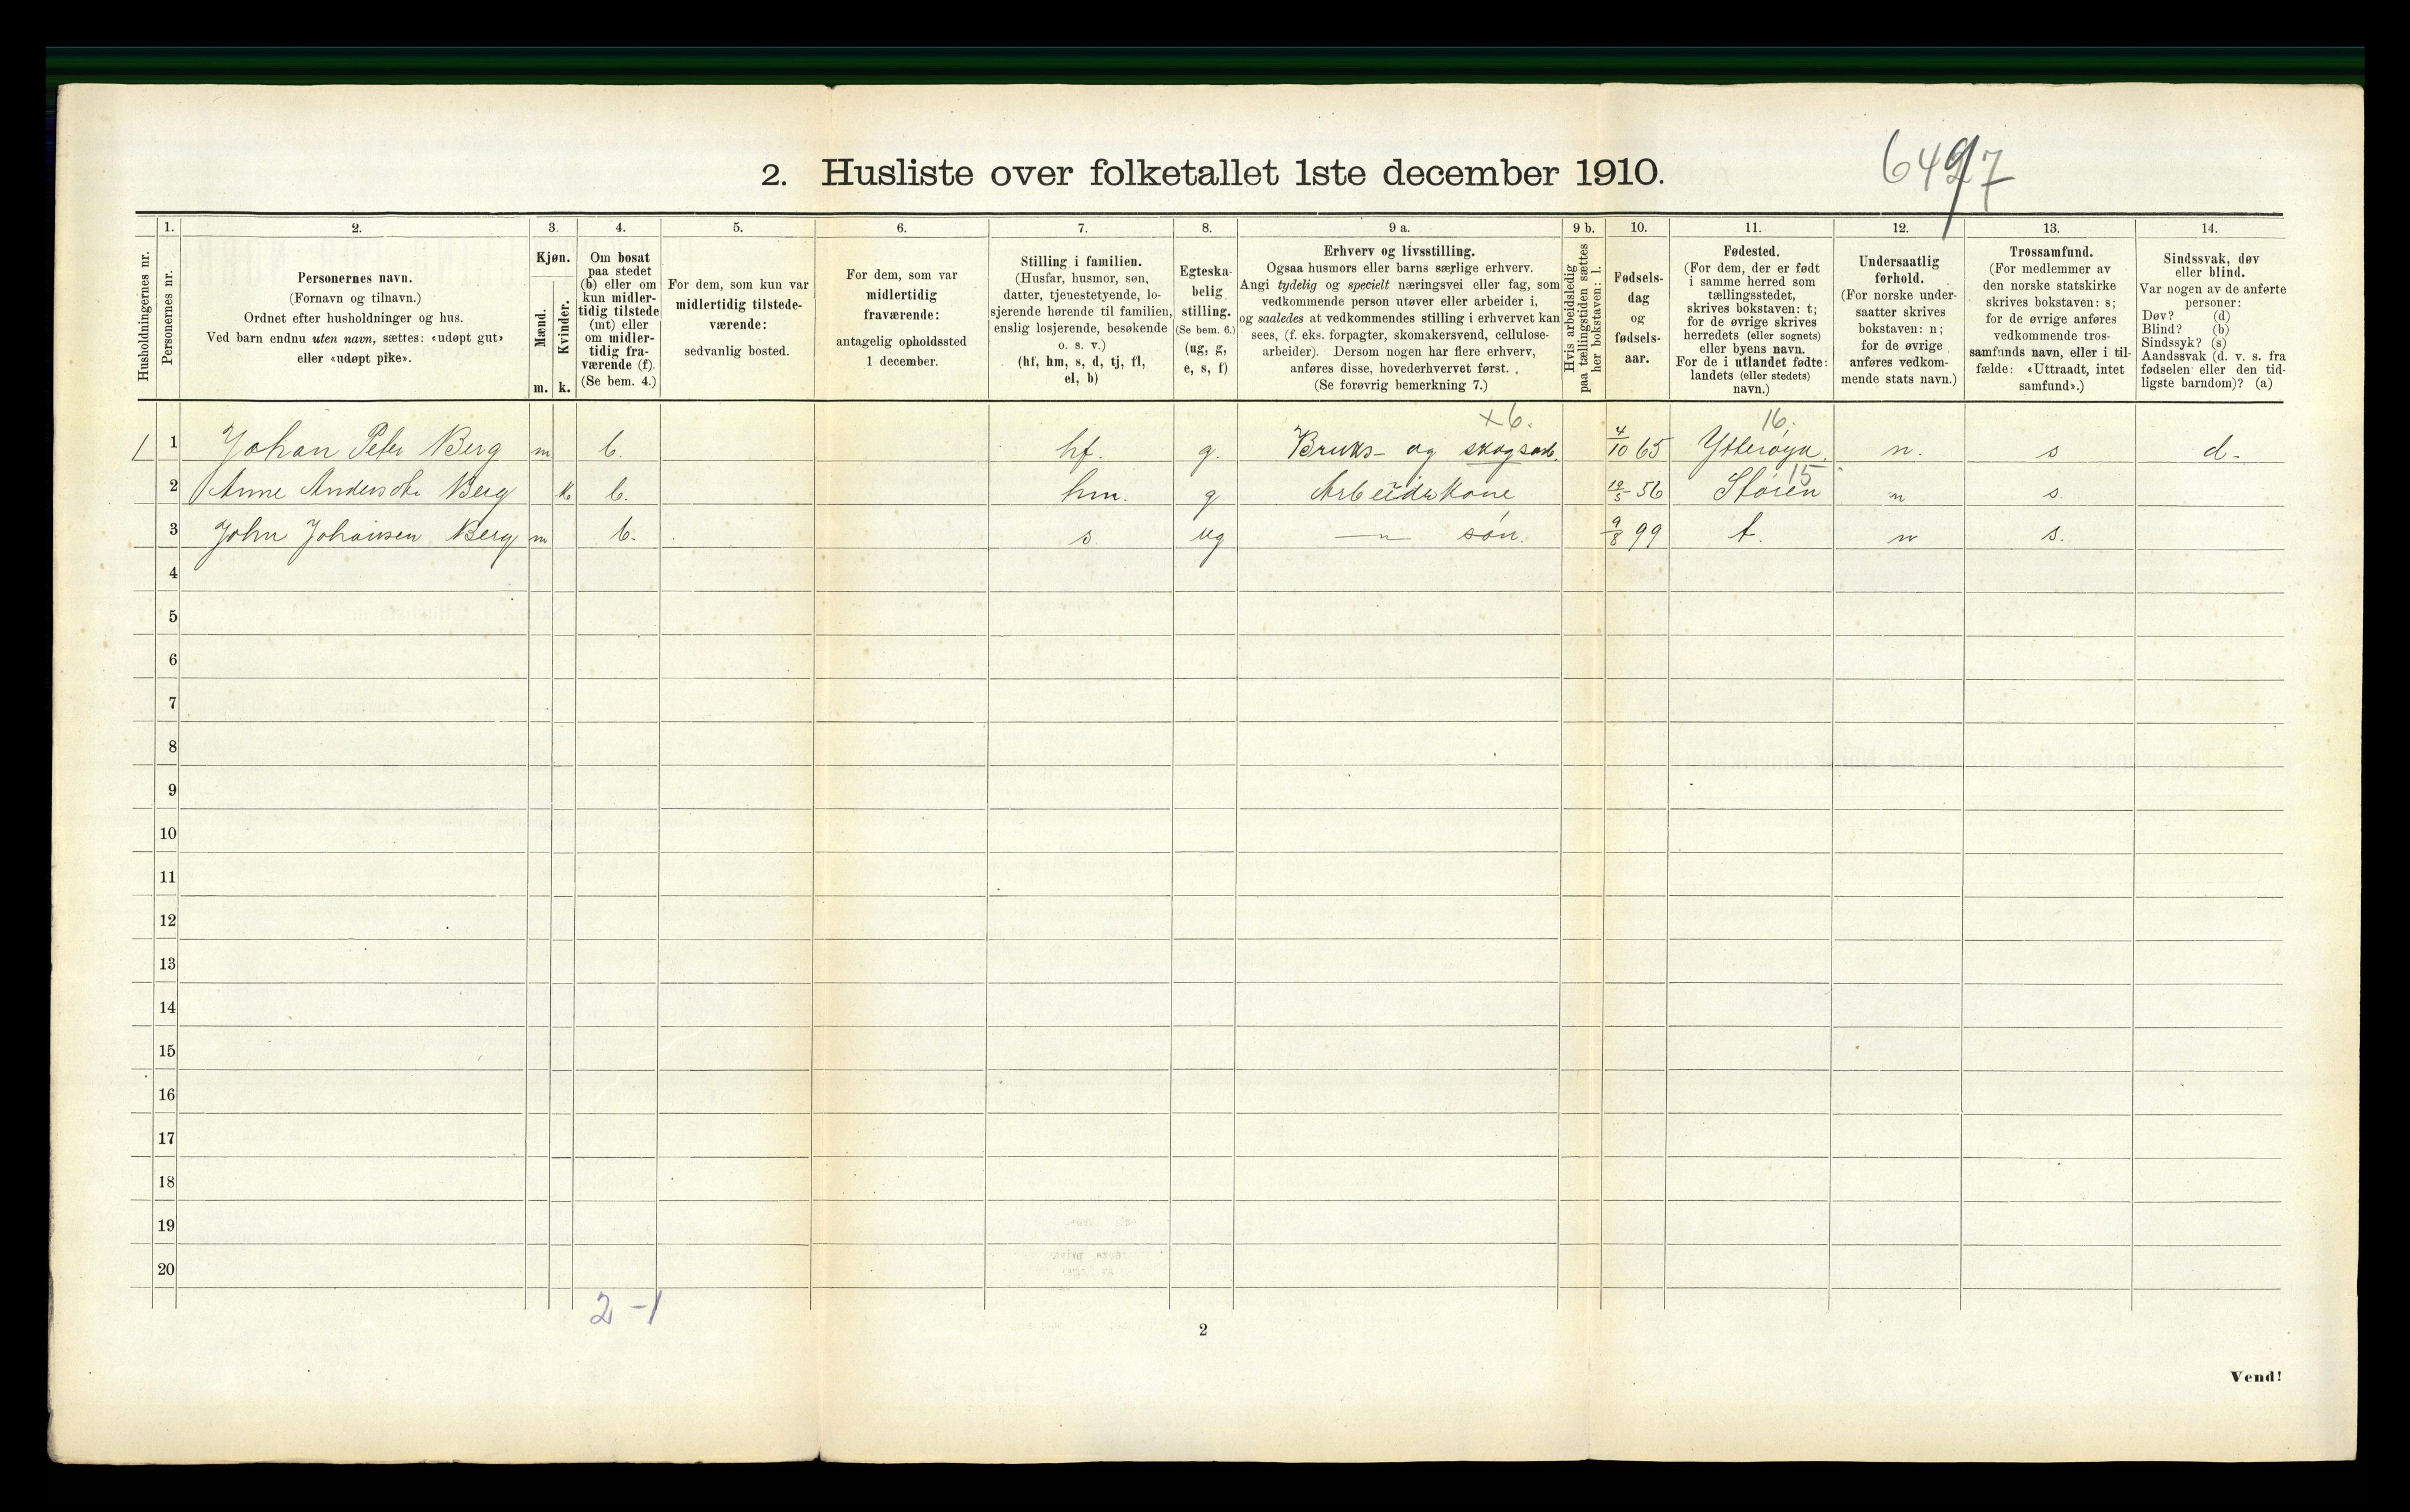 6497
2. Husliste over folketallet 1ste december 1910.
Husholdningernes nr.
1.
Personernes nr.
2.
Personernes navn.
(Fornavn og tilnavn.)
Ordnet efter husholdninger og hus.
Ved barn endnu uten navn, sættes: «udøpt gut»
eller «udøpt pike».
3.
Kjøn.
Mænd.
m.
Kvinder.
k.
4.
Om bosat
paa stedet
(b) eller om
kun midler-
tidig tilstede
(mt) eller
om midler-
tidig fra-
værende (f).
(Se bem. 4.)
5.
For dem, som kun var
midlertidig tilstede-
værende:
sedvanlig bosted.
6.
For dem, som var
midlertidig
fraværende:
antagelig opholdssted
1 december.
7.
Stilling i familien.
(Husfar, husmor, søn,
datter, tjenestetyende, lo-
sjerende hørende til familien,
enslig losjerende, besøkende
o. s. v.)
(hf, hm, s, d, tj, fl,
el, b)
8.
Egteska-
belig
stilling.
(Se bem. 6.)
(ug, g,
e, s, f)
9 a.
Erhverv og livsstilling.
Ogsaa husmors eller barns særlige erhverv.
Angi tydelig og specielt næringsvei eller fag, som
vedkommende person utøver eller arbeider i,
og saaledes at vedkommendes stilling i erhvervet kan
sees, (f. eks. forpagter, skomakersvend, cellulose-
arbeider). Dersom nogen har flere erhverv,
anføres disse, hovederhvervet først.
(Se forøvrig bemerkning 7.)
9 b.
Hvis arbeidsledig
paa tællingstiden sættes
her bokstaven: l.
10.
Fødsels-
dag
og
fødsels-
aar.
11.
Fødested.
(For dem, der er født
i samme herred som
tællingsstedet,
skrives bokstaven: t;
for de øvrige skrives
herredets (eller sognets)
eller byens navn.
For de i utlandet fødte:
landets (eller stedets)
navn.)
12.
Undersaatlig
forhold.
(For norske under-
saatter skrives
bokstaven: n;
for de øvrige
anføres vedkom-
mende stats navn.)
13.
Trossamfund.
(For medlemmer av
den norske statskirke
skrives bokstaven: s;
for de øvrige anføres
vedkommende tros-
samfunds navn, eller i til-
fælde: «Uttraadt, intet
samfund».)
14.
Sindssvak, døv
eller blind.
Var nogen av de anførte
personer:
Døv? (d)
Blind? (b)
Sindssyk? (s)
Aandssvak (d. v. s. fra
fødselen eller den tid-
ligste barndom)? (a)
x6. 16.
1 1 Johan Peter Berg m b. hf. g. Bruks- og skogsarb. 4/10 65 Ytterøya. n. s d.
15
2 Anne Andersdtr Berg k b. hm. g Arbeidskone 19/5 56 Støren n s
3 John Johansen Berg m b. s ug —"— søn. 9/8 99 t. n s.
4
5
6
7
8
9
10
11
12
13
14
15
16
17
18
19
20
2-1
2
Vend!